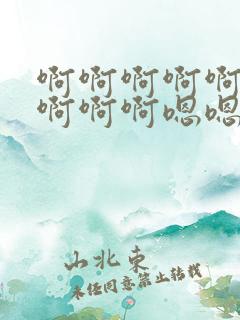 啊啊啊啊啊
啊啊啊嗯嗯
山北東
未经同意禁止转载